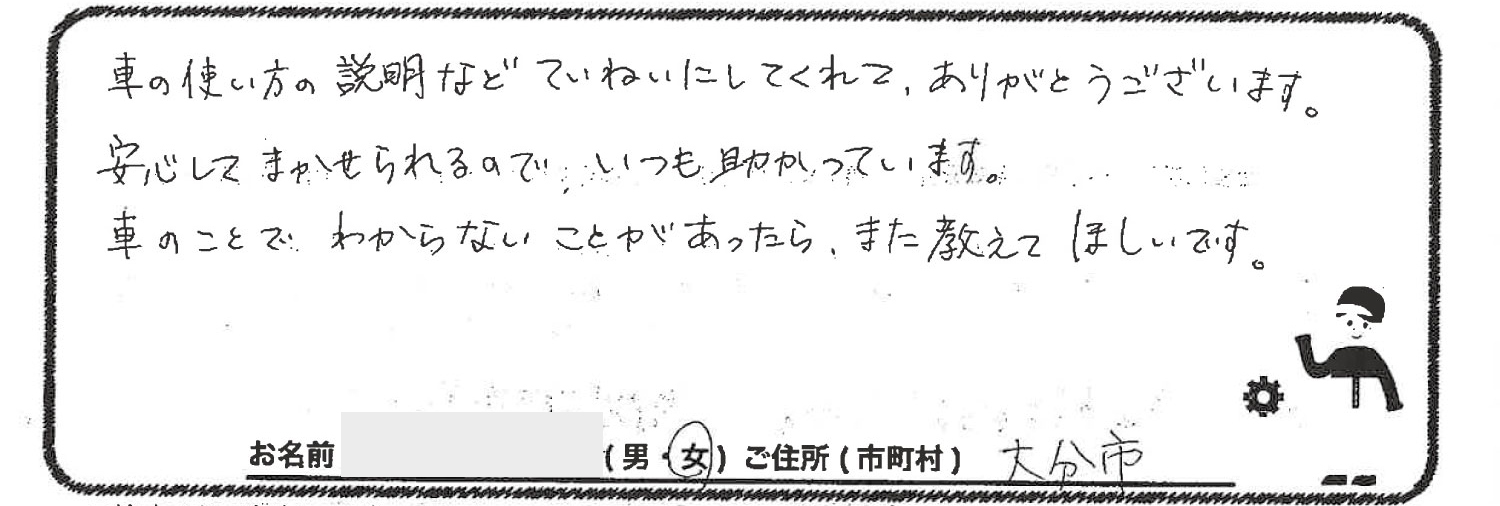 車の使い方の説明などていねいにしてくれて、ありがとうございます。
安心してまかせられるので、いつも助かっています。
車のことでわからないことがあったら、また教えてほしいです。
お名前 (男・女) ご住所(市町村) 大分市